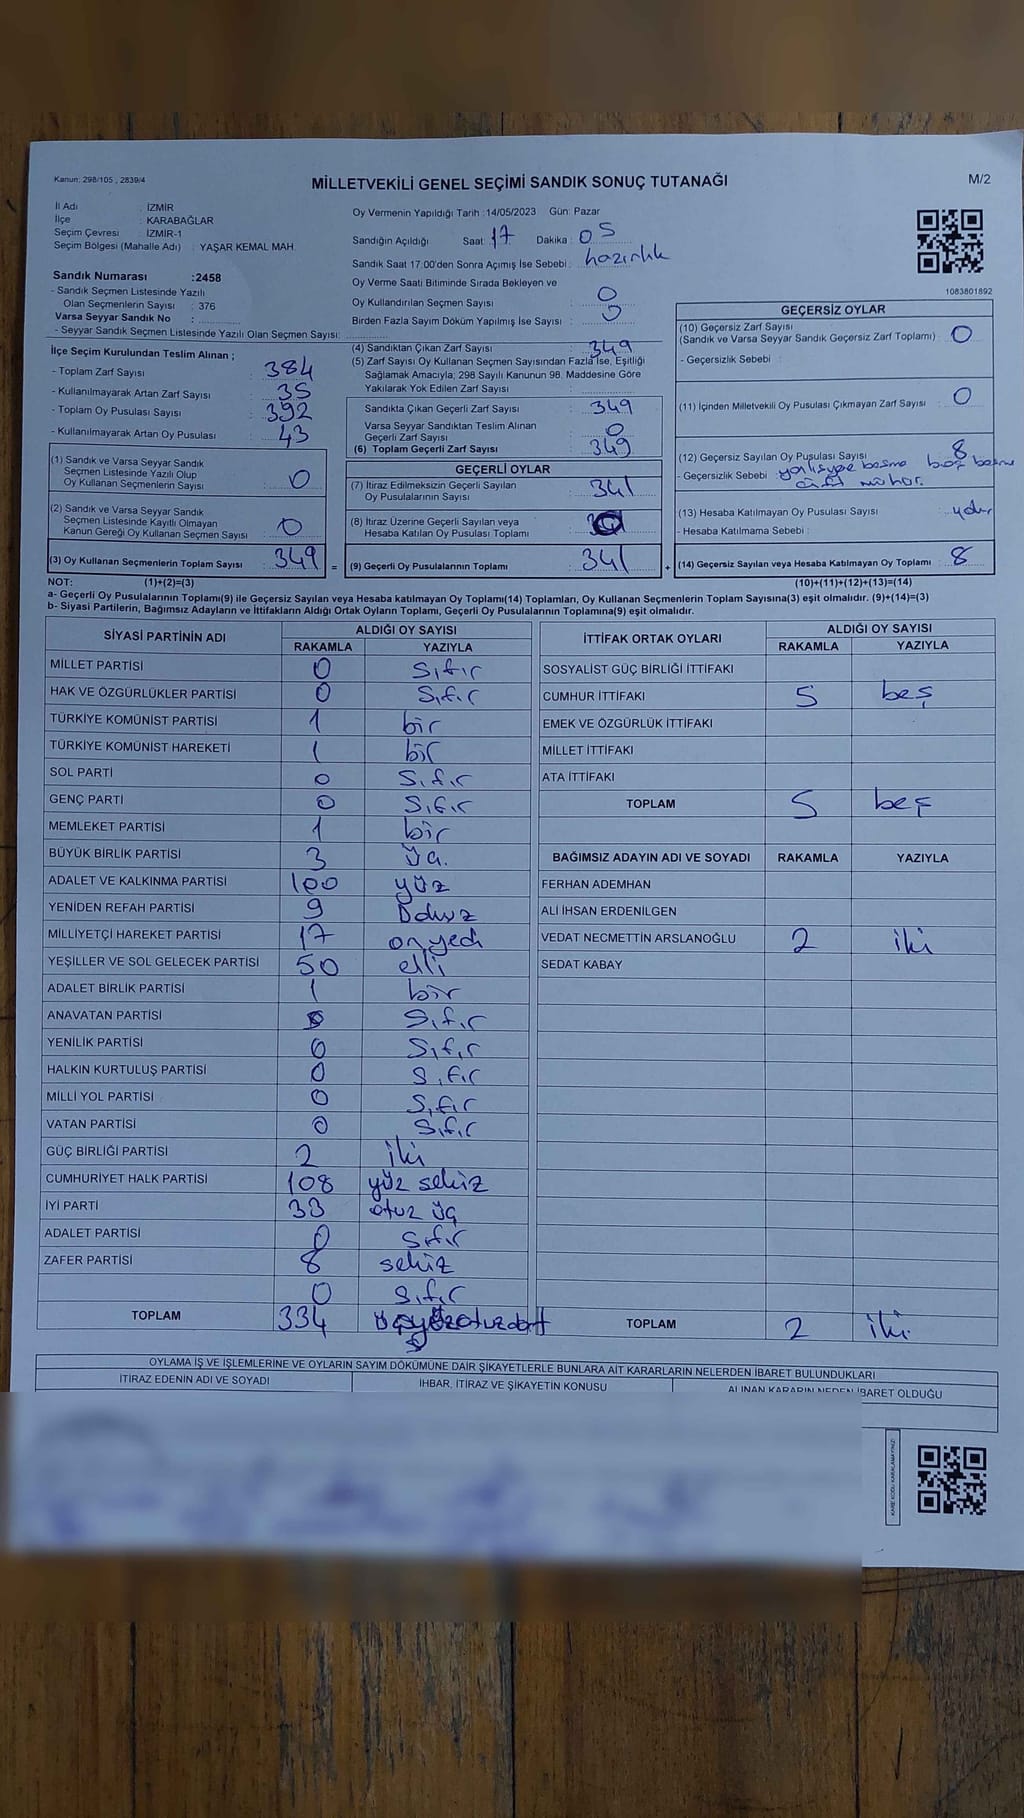 Kanun: 298/105 , 2839/4
MİLLETVEKİLİ GENEL SEÇİMİ SANDIK SONUÇ TUTANAĞI
M/2
İl Adı : İZMİR
İlçe : KARABAĞLAR
Seçim Çevresi : İZMİR-1
Seçim Bölgesi (Mahalle Adı) : YAŞAR KEMAL MAH.
Sandık Numarası :2458
- Sandık Seçmen Listesinde Yazılı
Olan Seçmenlerin Sayısı : 376
Varsa Seyyar Sandık No :
- Seyyar Sandık Seçmen Listesinde Yazılı Olan Seçmen Sayısı:
Oy Vermenin Yapıldığı Tarih :14/05/2023 Gün: Pazar
Sandığın Açıldığı Saat: 17 Dakika : 05
Sandık Saat 17:00'den Sonra Açımış İse Sebebi : hazırlık
Oy Verme Saati Bitiminde Sırada Bekleyen ve
Oy Kullandırılan Seçmen Sayısı : 0
Birden Fazla Sayım Döküm Yapılmış İse Sayısı : 0
1083801892
İlçe Seçim Kurulundan Teslim Alınan ;
- Toplam Zarf Sayısı : 384
- Kullanılmayarak Artan Zarf Sayısı : 35
- Toplam Oy Pusulası Sayısı : 392
- Kullanılmayarak Artan Oy Pusulası : 43
(1) Sandık ve Varsa Seyyar Sandık
Seçmen Listesinde Yazılı Olup
Oy Kullanan Seçmenlerin Sayısı : 0
(2) Sandık ve Varsa Seyyar Sandık
Seçmen Listesinde Kayıtlı Olmayan
Kanun Gereği Oy Kullanan Seçmen Sayısı : 0
(3) Oy Kullanan Seçmenlerin Toplam Sayısı : 349 =
(4) Sandıktan Çıkan Zarf Sayısı : 349
(5) Zarf Sayısı Oy Kullanan Seçmen Sayısından Fazla İse, Eşitliği
Sağlamak Amacıyla; 298 Sayılı Kanunun 98. Maddesine Göre
Yakılarak Yok Edilen Zarf Sayısı :
Sandıkta Çıkan Geçerli Zarf Sayısı : 349
Varsa Seyyar Sandıktan Teslim Alınan
Geçerli Zarf Sayısı : 0
(6) Toplam Geçerli Zarf Sayısı : 349
GEÇERLİ OYLAR
(7) İtiraz Edilmeksizin Geçerli Sayılan
Oy Pusulalarının Sayısı : 341
(8) İtiraz Üzerine Geçerli Sayılan veya
Hesaba Katılan Oy Pusulası Toplamı :
(9) Geçerli Oy Pusulalarının Toplamı : 341 +
GEÇERSİZ OYLAR
(10) Geçersiz Zarf Sayısı
(Sandık ve Varsa Seyyar Sandık Geçersiz Zarf Toplamı) : 0
- Geçersizlik Sebebi :
(11) İçinden Milletvekili Oy Pusulası Çıkmayan Zarf Sayısı : 0
(12) Geçersiz Sayılan Oy Pusulası Sayısı : 8
- Geçersizlik Sebebi : basma boş
çift mühür.
(13) Hesaba Katılmayan Oy Pusulası Sayısı :
- Hesaba Katılmama Sebebi :
(14) Geçersiz Sayılan veya Hesaba Katılmayan Oy Toplamı : 8
NOT: (1)+(2)=(3) (10)+(11)+(12)+(13)=(14)
a- Geçerli Oy Pusulalarının Toplamı(9) ile Geçersiz Sayılan veya Hesaba katılmayan Oy Toplamı(14) Toplamları, Oy Kullanan Seçmenlerin Toplam Sayısına(3) eşit olmalıdır. (9)+(14)=(3)
b- Siyasi Partilerin, Bağımsız Adayların ve İttifakların Aldığı Ortak Oyların Toplamı, Geçerli Oy Pusulalarının Toplamına(9) eşit olmalıdır.
SİYASİ PARTİNİN ADI ALDIĞI OY SAYISI
RAKAMLA YAZIYLA
MİLLET PARTİSİ 0 sıfır
HAK VE ÖZGÜRLÜKLER PARTİSİ 0 sıfır
TÜRKİYE KOMÜNİST PARTİSİ 1 bir
TÜRKİYE KOMÜNİST HAREKETİ 1 bir
SOL PARTİ 0 sıfır
GENÇ PARTİ 0 sıfır
MEMLEKET PARTİSİ 1 bir
BÜYÜK BİRLİK PARTİSİ 3 üç.
ADALET VE KALKINMA PARTİSİ 100 yüz
YENİDEN REFAH PARTİSİ 9 Dokuz
MİLLİYETÇİ HAREKET PARTİSİ 17 onyedi
YEŞİLLER VE SOL GELECEK PARTİSİ 50 elli
ADALET BİRLİK PARTİSİ 1 bir
ANAVATAN PARTİSİ 0 sıfır
YENİLİK PARTİSİ 0 sıfır
HALKIN KURTULUŞ PARTİSİ 0 sıfır
MİLLİ YOL PARTİSİ 0 sıfır
VATAN PARTİSİ 0 sıfır
GÜÇ BİRLİĞİ PARTİSİ 2 iki
CUMHURİYET HALK PARTİSİ 108 yüz sekiz
İYİ PARTİ 33 otuz üç
ADALET PARTİSİ 0 sıfır
ZAFER PARTİSİ 8 sekiz
0 sıfır
TOPLAM 334 üçyüzotuzdört
İTTİFAK ORTAK OYLARI ALDIĞI OY SAYISI
RAKAMLA YAZIYLA
SOSYALİST GÜÇ BİRLİĞİ İTTİFAKI
CUMHUR İTTİFAKI 5 beş
EMEK VE ÖZGÜRLÜK İTTİFAKI
MİLLET İTTİFAKI
ATA İTTİFAKI
TOPLAM 5 beş
BAĞIMSIZ ADAYIN ADI VE SOYADI RAKAMLA YAZIYLA
FERHAN ADEMHAN
ALİ İHSAN ERDENİLGEN
VEDAT NECMETTİN ARSLANOĞLU 2 iki
SEDAT KABAY
TOPLAM 2 iki
OYLAMA İŞ VE İŞLEMLERİNE VE OYLARIN SAYIM DÖKÜMÜNE DAİR ŞİKAYETLERLE BUNLARA AİT KARARLARIN NELERDEN İBARET BULUNDUKLARI
İTİRAZ EDENİN ADI VE SOYADI İHBAR, İTİRAZ VE ŞİKAYETİN KONUSU ALINAN KARARIN NEDEN İBARET OLDUĞU
KARE KODU KARALAMAYINIZ!